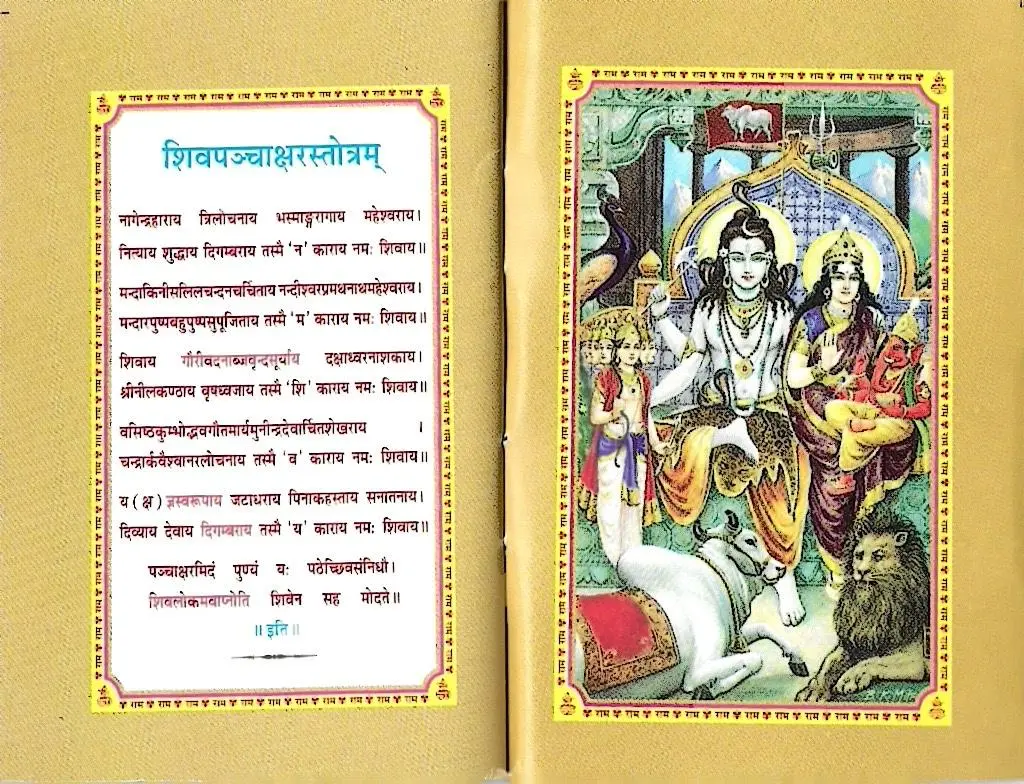 शिवपञ्चाक्षरस्तोत्रम्
नागेन्द्रहाराय त्रिलोचनाय भस्माङ्गरागाय महेश्वराय।
नित्याय शुद्धाय दिगम्बराय तस्मै 'न' काराय नमः शिवाय॥
मन्दाकिनीसलिलचन्दनचर्चिताय नन्दीश्वरप्रमथनाथमहेश्वराय।
मन्दारपुष्पबहुपुष्पसुपूजिताय तस्मै 'म' काराय नमः शिवाय॥
शिवाय गौरीवदनाब्जवृन्दसूर्याय दक्षाध्वरनाशकाय।
श्रीनीलकण्ठाय वृषध्वजाय तस्मै 'शि' काराय नमः शिवाय॥
वसिष्ठकुम्भोद्भवगौतमार्यमुनीन्द्रदेवार्चितशेखराय ।
चन्द्रार्कवैश्वानरलोचनाय तस्मै 'व' काराय नमः शिवाय॥
य (क्ष) ज्ञस्वरूपाय जटाधराय पिनाकहस्ताय सनातनाय।
दिव्याय देवाय दिगम्बराय तस्मै 'य' काराय नमः शिवाय॥
पञ्चाक्षरमिदं पुण्यं यः पठेच्छिवसंनिधौ।
शिवलोकमवाप्नोति शिवेन सह मोदते॥
॥ इति॥